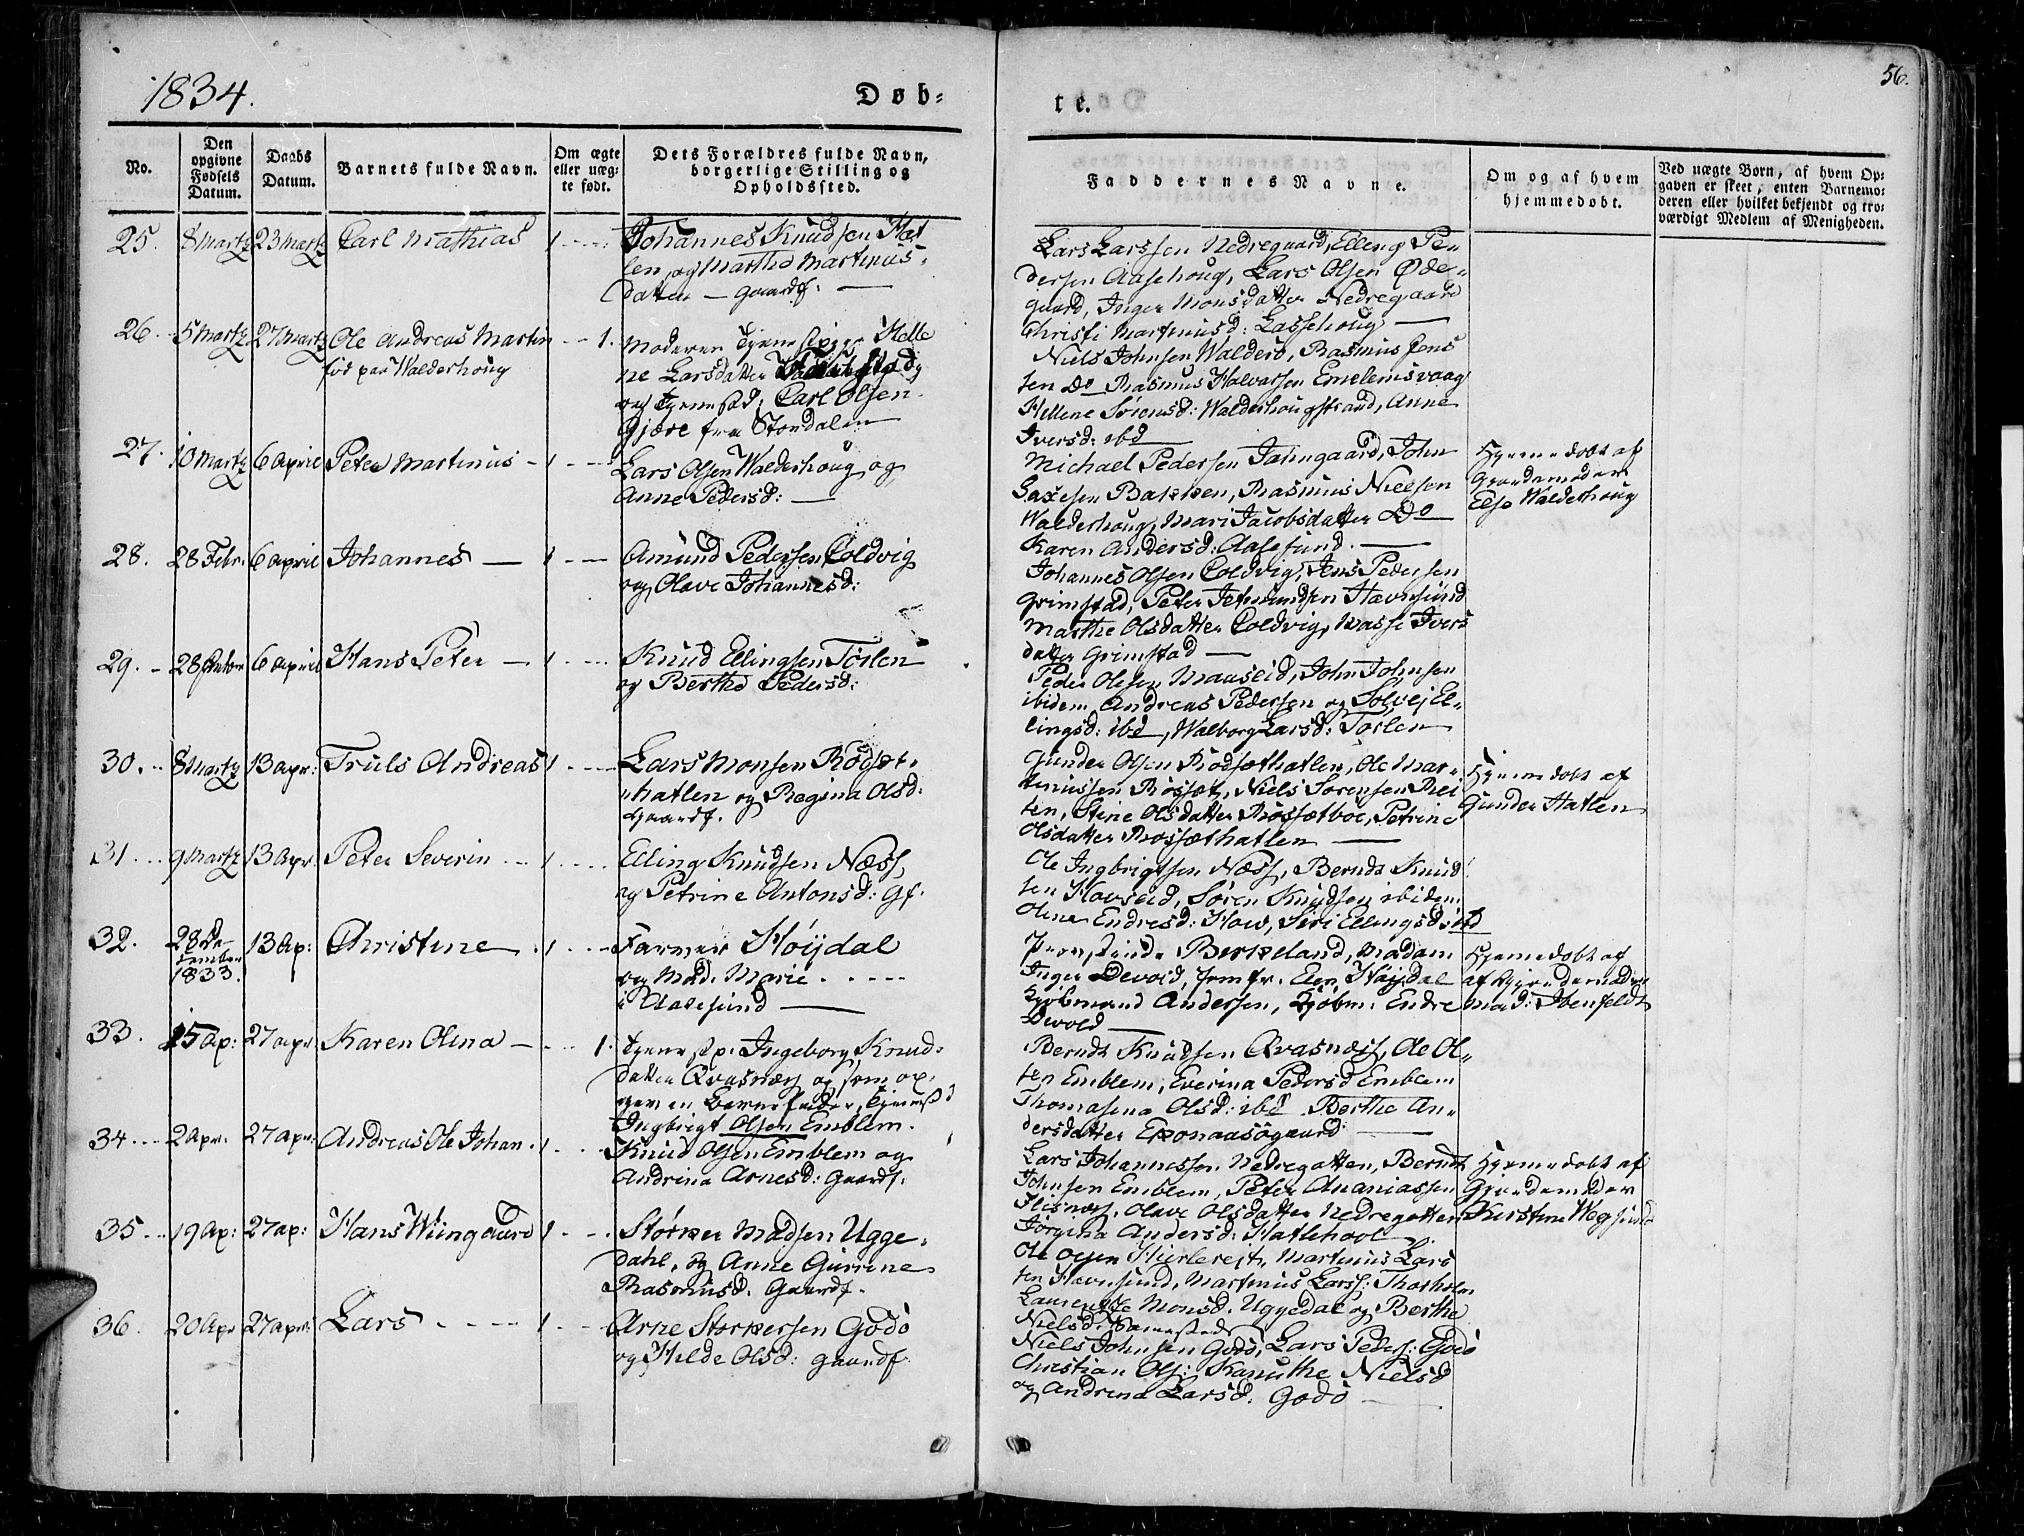 1834.
Døb-
te.
56.
No.
Den
opgivne
Fødsels
Datum.
Daabs
Datum.
Barnets fulde Navn.
Om ægte
eller uæg-
te født.
Dets Forældres fulde Navn,
borgerlige Stilling og
Opholdssted.
Faddernes Navne.
Om og af hvem
hjemmedøbt.
Ved uægte Børn, af hvem Op-
gaven er skeet, enten Barnemo-
deren eller hvilket bekjendt og tro-
værdigt Medlem af Menigheden.
25. 8 Martz 23 Martz Carl Mathias 1
Johannes Knudsen Hat
len og Marthe Martinus-
datter — Gaardf. —
Lars Larssen Nedregaard, Elling Pe-
dersen Aasehoug, Lars Olsen Øde-
gaard, Inger Monsdatter Nedregaard
Christi Martinusd: Lassehoug —
26. 5 Martz 27 Martz Ole Andreas Martin 1.
fød paa Walderhoug
Moderen Tjenestpige Helle
ne Larsdatter
og Tjenestd, Carl Olsen
Gjære fra Stordalen
Niels Johnsen Walderø, Rasmus Jens
sen Do Rasmus Halvorsen Emelemsvaag
Hellene Sivensd: Walderhougstrand, Anne
Iversd: ibd
27. 10 Martz 6 April Peter Martinus 1
Lars Olsen Walderhoug og
Anne Pedersd: —
Michael Pedersen Jatingaard, John
Saxesen Bakken, Rasmus Nielsen
Walderhoug, Mari Jacobsdatter Do
Karen Andersd: Aalesund. —
Hjemmedøbt af
Gjordemoder
Else Walderhoug
28. 28 Febr. 6 April Johannes — 1
Amund Pedersen Coldvig
og Olave Johannesd:
Johannes Olsen Coldvig, Jens Pedersen
Grimstad, Peter Jetmundsen Havnsund
Marthe Olsdatter Coldvig, Masse Ivers
datter Grimstad —
29. 28 6 April Hans Peter — 1
Knud Ellingsen Torlen
og Berthe Pedersd:
Peder Olesen Mauseid, John Johnsen
ibidem Andreas Pedersen og Solvej El-
lingsd: ibd, Walborg Larsd: Torlen
30. 8 Martz 13 Apr: Truls Andreas 1
Lars Monsen Røgset-
hatlen og Regina Olsd:
Gaardf.
Gunder Olsen Rødsæthatlen, Ole Mar-
tinussen Røssæt, Niels Sørensen Rei
ten, Stine Olsdatter Røssætboe, Petrine
Olsdatter Røssæthatlen —
Hjemmedøbt af
Gunder Hatlen
31. 9 Martz 13 Apr. Peter Severin 1
Elling Knudsen Næss,
og Petrine Antonsd: Gf.
Ole Ingbrigtsen Næss, Berndt Knud
sen Hovseid, Søren Knudsen ibidem
Oline Endresd: How, Siri Ellingsd: ibd
32. 28 De-
cember
1833. 13 Ap: Christine 1
Farver Høijdal
og Mad. Marie
i Aalesund —
Berkeland, Madam
Inger Devold, Jomfr. Høijdal
Kjøbmand Andersen, Kjøbm. Endre
Devold —
Hjemmedøbt af
af Gjordemoder
Mad: Ibenfeldt
33. 15 Ap: 27 Apr Karen Olina — 1.
Tjenestp. Ingeborg Knud-
datter Qvasnæs og som op-
given Barnefader, Tjenestd
Ingbrigt Olsen Emblem.
Berndt Knudsen Qvasnæs, Ole Ol-
sen Emblem, Everina Pedersd Emblem
Thomasena Olsd: ibd Berthe An-
dersdatter Eponaasøgaard —
34. 2 Apr. 27 Apr: Andreas Ole Johan 1
Knud Olsen Emblem og
Andrina Arnesd: Gaardf.
Lars Johannessen Nedregatten, Berndt
Johnsen Emblem, Peter Ananiassen
Flisnæs, Olave Olsdatter Nedregotten
Jørgina Andersd: Hatlehool
Hjemmedøbt af
Gjordemoder
Kirstine Wegsund
35. 19 Ap: 27 Ap: Hans Wiingaard 1
Størker Madsen Ugge-
dahl, og Anne Gurrine
Rasmusd. Gaardf.
Ole Olsen Hierlereit, Martinus Lars
sen Havnsund, Martinus Larss: Thorholm
Laurentze Monsd. Uggedal og Berthe
Nielsd. sammested
36. 20 Apr 27 Apr: Lars 1
Arne Størkersen Godø
og Hilde Olsd: Gaardf.
Niels Johnsen Godø, Lars Peders: Godø
Christian Ols: Kanuthe Nielsd
og Andrina Larsd. Godø —